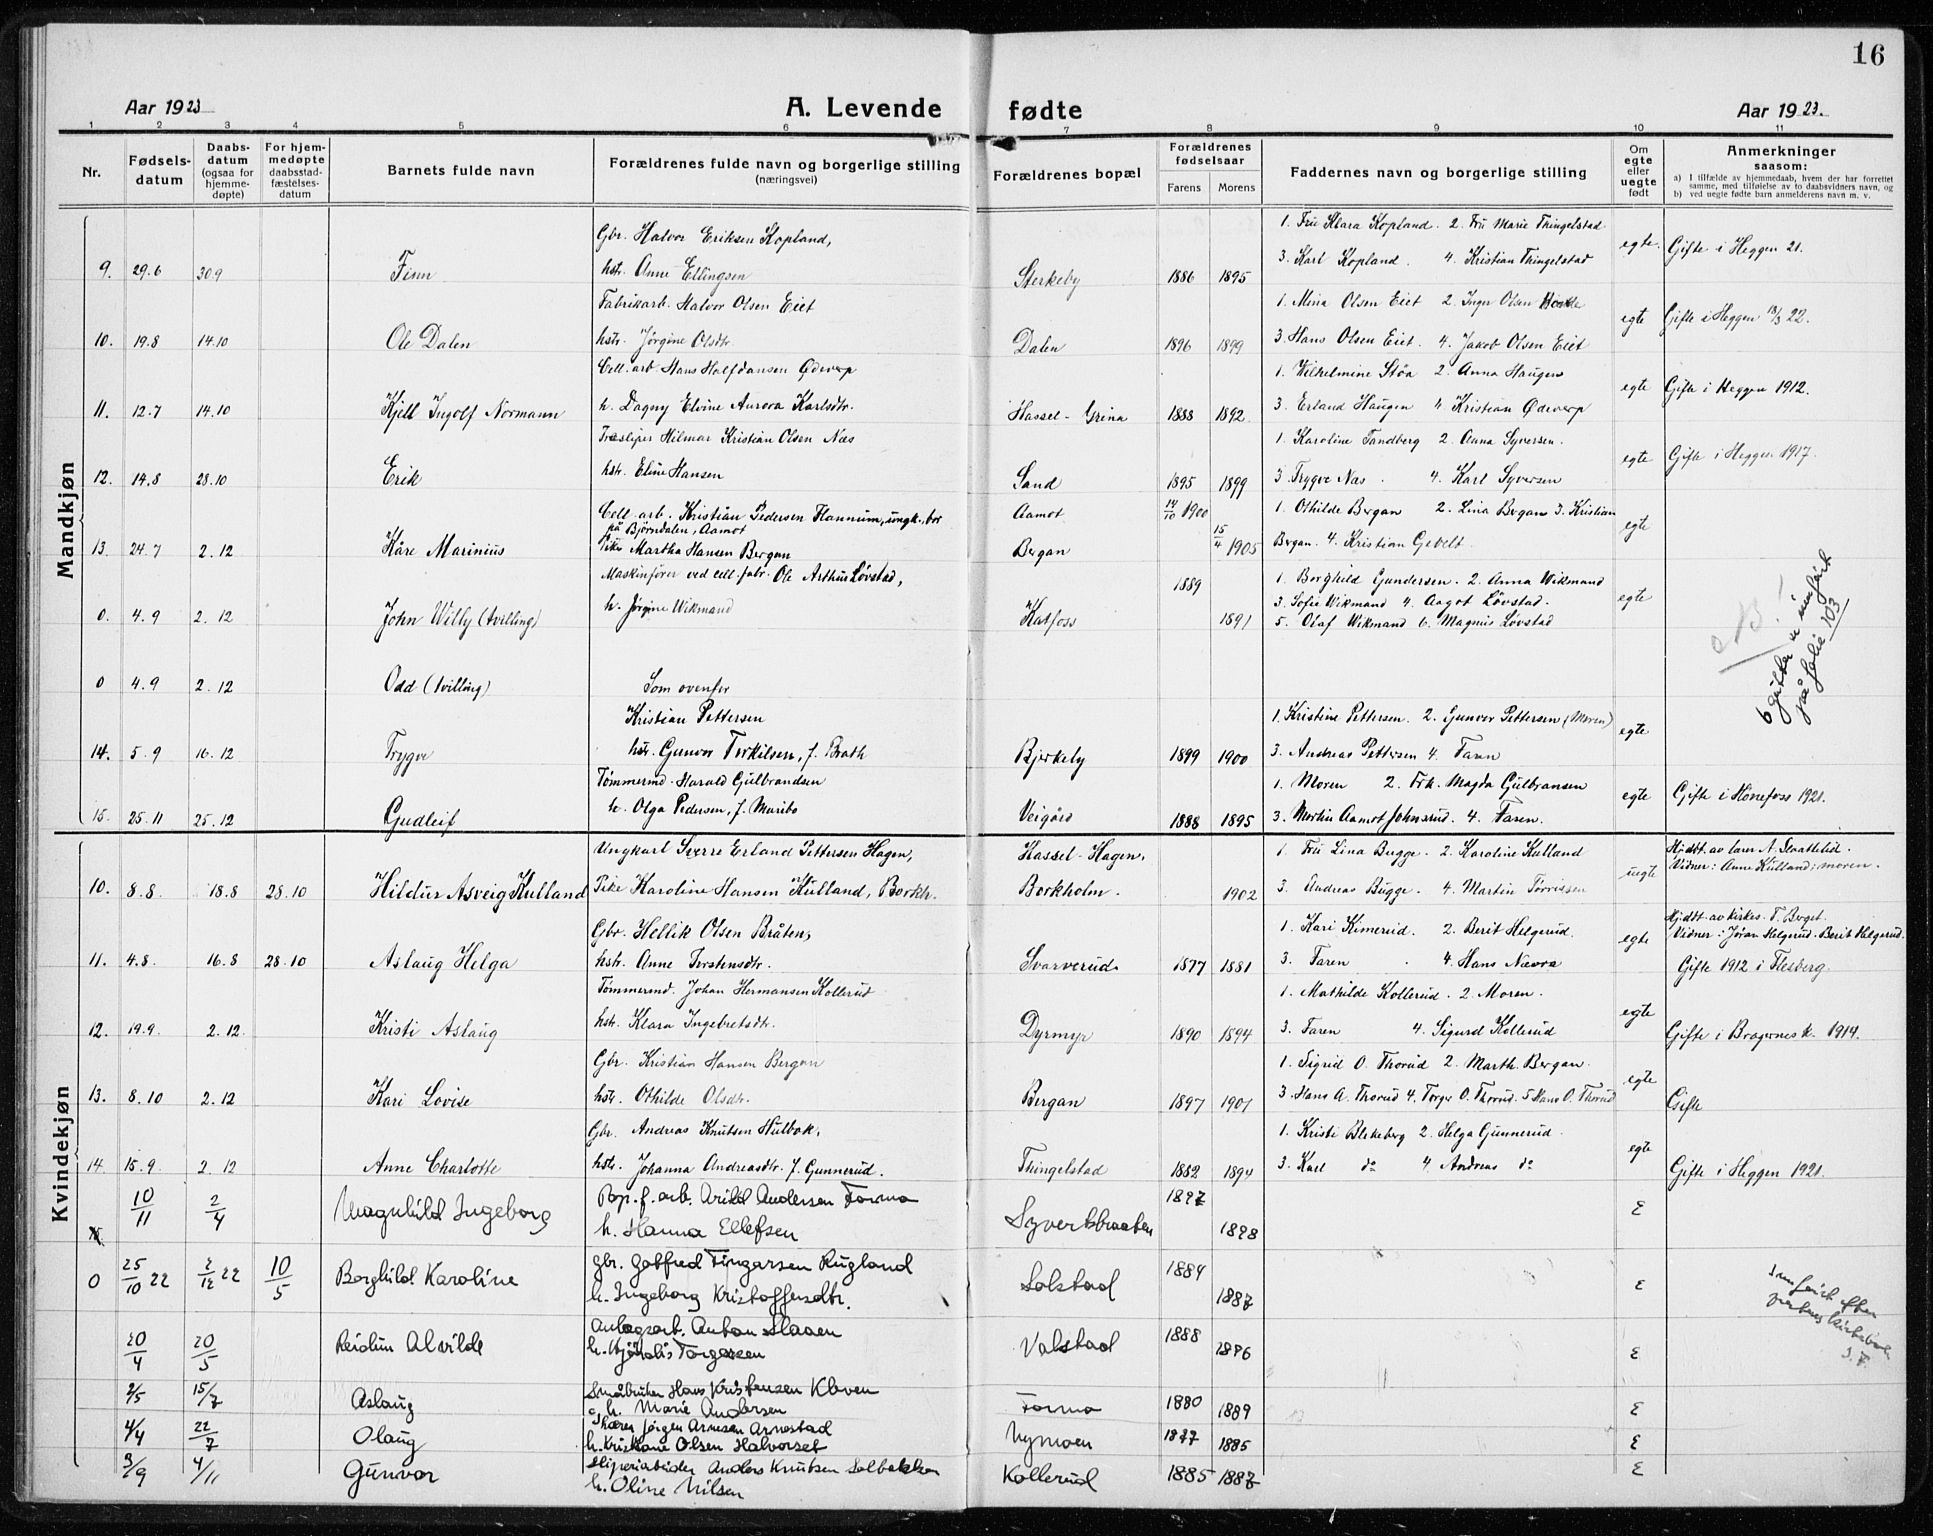 16
Aar 1923
A. Levende
fødte
Aar 1923.
1 2 3 4 5 6 7 8 9 10 11
Nr.
Fødsels-
datum
Daabs-
datum
(ogsaa for
hjemme-
døpte)
For hjem-
medøpte
daabsstad-
fæstelses-
datum
Barnets fulde navn
Forældrenes fulde navn og borgerlige stilling
(næringsvei)
Forældrenes bopæl
Forældrenes
fødselsaar
Farens Morens
Faddernes navn og borgerlige stilling
Om
egte
eller
uegte
født
Anmerkninger
saasom:
a) I tilfælde av hjemmedaab, hvem der har forrettet
samme, med tilføielse av to daabsvidners navn, og
b) ved uegte fødte barn anmelderens navn m. v.
Mandkjøn
Gbr. Halvor Eriksen Kopland, 1. Fru Klara Kopland. 2. Fru Marie Thingelstad
9. 29.6 30.9 Finn hstr. Anne Ellingsen Sterkeby 1886 1895 3. Karl Kopland. 4. Kristian Thingelstad egte. Gifte i Heggen 21.
Fabrikarb. Halvor Olsen Eiet 1. Mina Olsen Eiet 2. Inger Olsen
10. 19.8 14.10 Ole Dalen hstr. Jørgine Olsdtr. Dalen 1896 1899 3. Hans Olsen Eiet. 4. Jakob Olsen Eiet egte Gifte i Heggen 18/3 22.
Cell. arb Hans Halfdansen Ødeverp 1. Vilhelmine Støa 2. Anna Haugen
11. 12.7 14.10 Kjell Ingolf Normann h. Dagny Elvine Aurora Karlsdtr. Hassel-Grina 1888 1892 3. Erland Haugen 4. Kristian Ødeverp egte Gifte i Heggen 1912.
Træsliper Hilmar Kristian Olsen Næs 1. Karoline Tandberg 2. Anna Syversen.
12. 14.8 28.10 Erik hstr. Eline Hansen Sand 1895 1899 3. Trygve Næs. 4. Karl Syversen egte Gifte i Heggen 1917.
Cell. arb. Kristian Pedersen Flannum, ungk., bor Aamot 14/10 1900 1. Othilde Bergan 2. Lina Bergan 3. Kristian
på Bjørndalen, Aamot
13. 24.7 2.12 Kåre Marinius Pike Martha Hansen Bergan Bergan 15/4 1905 Bergan. 4. Kristian Gevelt. egte
Maskinfører ved cell. fabr. Ole Arthur Løvstad, 1889 1. Borghild Gundersen. 2. Anna Wikmand
0. 4.9 2.12 John Willy (tvilling) h. Jørgine Wikmand Katfoss 1891 3. Sofie Wikmand 4. Aagot Løvstad. egte
5. Olaf Wikmand 6. Magnus Løvstad
NB!
6 gutter er innført
på folie 103
0 4.9 2.12 Odd (tvilling) Som ovenfor
Kristian Pettersen 1. Kristine Pettersen. 2. Gunvor Pettersen (Moren)
14. 5.9 16.12 Trygve hstr. Gunvor Torkilsen, f. Brath Bjerkeby 1899 1900 3. Andreas Pettersen 4. Faren egte
Tømmermd. Harald Gulbrandsen 1. Moren 2. Frk. Magda Gulbransen
15. 25.11 25.12 Gudleif h. Olga Pedersen, f. Muribø Veigård 1888 1895 3. Martin Aamot Johnsrud. 4. Faren. egte Gifte i Hønefoss 1921.
Kvindekjøn
Ungkarl Sverre Erland Pettersen Hagen, Hassel-Hagen. 1. Fru Lina Bugge. 2. Karoline Kulland Hj.døt. av lærer N. Skrattelid.
10. 8.8. 18.8 28.10 Hildur Asveig Kulland Pike Karoline Hansen Kulland, Borkh. Borkholm. 1902 3. Andreas Bugge. 4. Martin Tørrissen uegte Vidner: Anne Kulland; moren.
Gbr. Hellik Olsen Bråten, 1. Kari Kimerud. 2. Berit Helgerud. Hj.døt. av kirkes. T. Berget.
11. 4.8. 16.8 28.10 Aslaug Helga hstr. Anne Torstensdtr. Svarverud. 1877 1881 3. Faren. 4. Hans Nævra egte Vidner: Jøran Helgerud. Berit Helgerud.
Gifte 1912 i Flesberg.
Tømmermd. Johan Hermansen Kollerud 1. Mathilde Kollerud. 2. Moren.
12. 19.9. 2.12. Kristi Aslaug hstr. Klara Ingebretsdtr. Dyrmyr 1890 1894 3. Faren 4. Sigurd Kollerud egte Gifte i Bragernes k. 1914.
Gbr. Kristian Hansen Bergan 1. Sigrid O. Thorud 2. Marth. Bergan.
13. 8.10 2.12 Kari Lovise hstr. Othilde Olsdtr. Bergan 1897 1901 3. Hans A. Thorud 4. Torger O. Thorud. 5 Hans O. Thorud egte Gifte
Gbr. Andreas Knutsen Hulbak, 1. Kristi Blekeberg 2. Helga Gunnerud.
14. 15.9. 2.12 Anne Charlotte hstr. Johanna Andreasdtr. f. Gunnerud. Thingelstad 1882 1894 3. Karl do 4. Andreas do egte Gifte i Heggen 1921.
10/11 2/4 Magnhild Ingeborg Pap. f. arb. Arild Andersen Formo Syverksbraaten 1897 E
h. Hanna Ellefsen 1898
0 25/10 22 2/12 22 10/5 Borghild Karoline gbr. Gotfred Fingarsen Rugland Solstad 1884 E
h. Ingeborg Kristoffersdtr. 1887
20/4 20/5 Reidun Alvilde Anlegsarb. Anton Slaaen Valstad 1888 E
h. Hjørdis Torgersen 1896
2/5 15/7 Aslaug Småbruker Hans Kristensen Kleven Formo 1880 1889 E
h. Marie Andersen
4/4 22/7 Olaug Jørgen Arnesen Arnestad Nymoen 1877 1885 E
h. Kristiane Olsen Halvorset
3/9 4/11 Gunvor Sliperiarbeider Anders Knutsen Solbakken Kollerud 1885 1887 E
h. Oline Nilsen